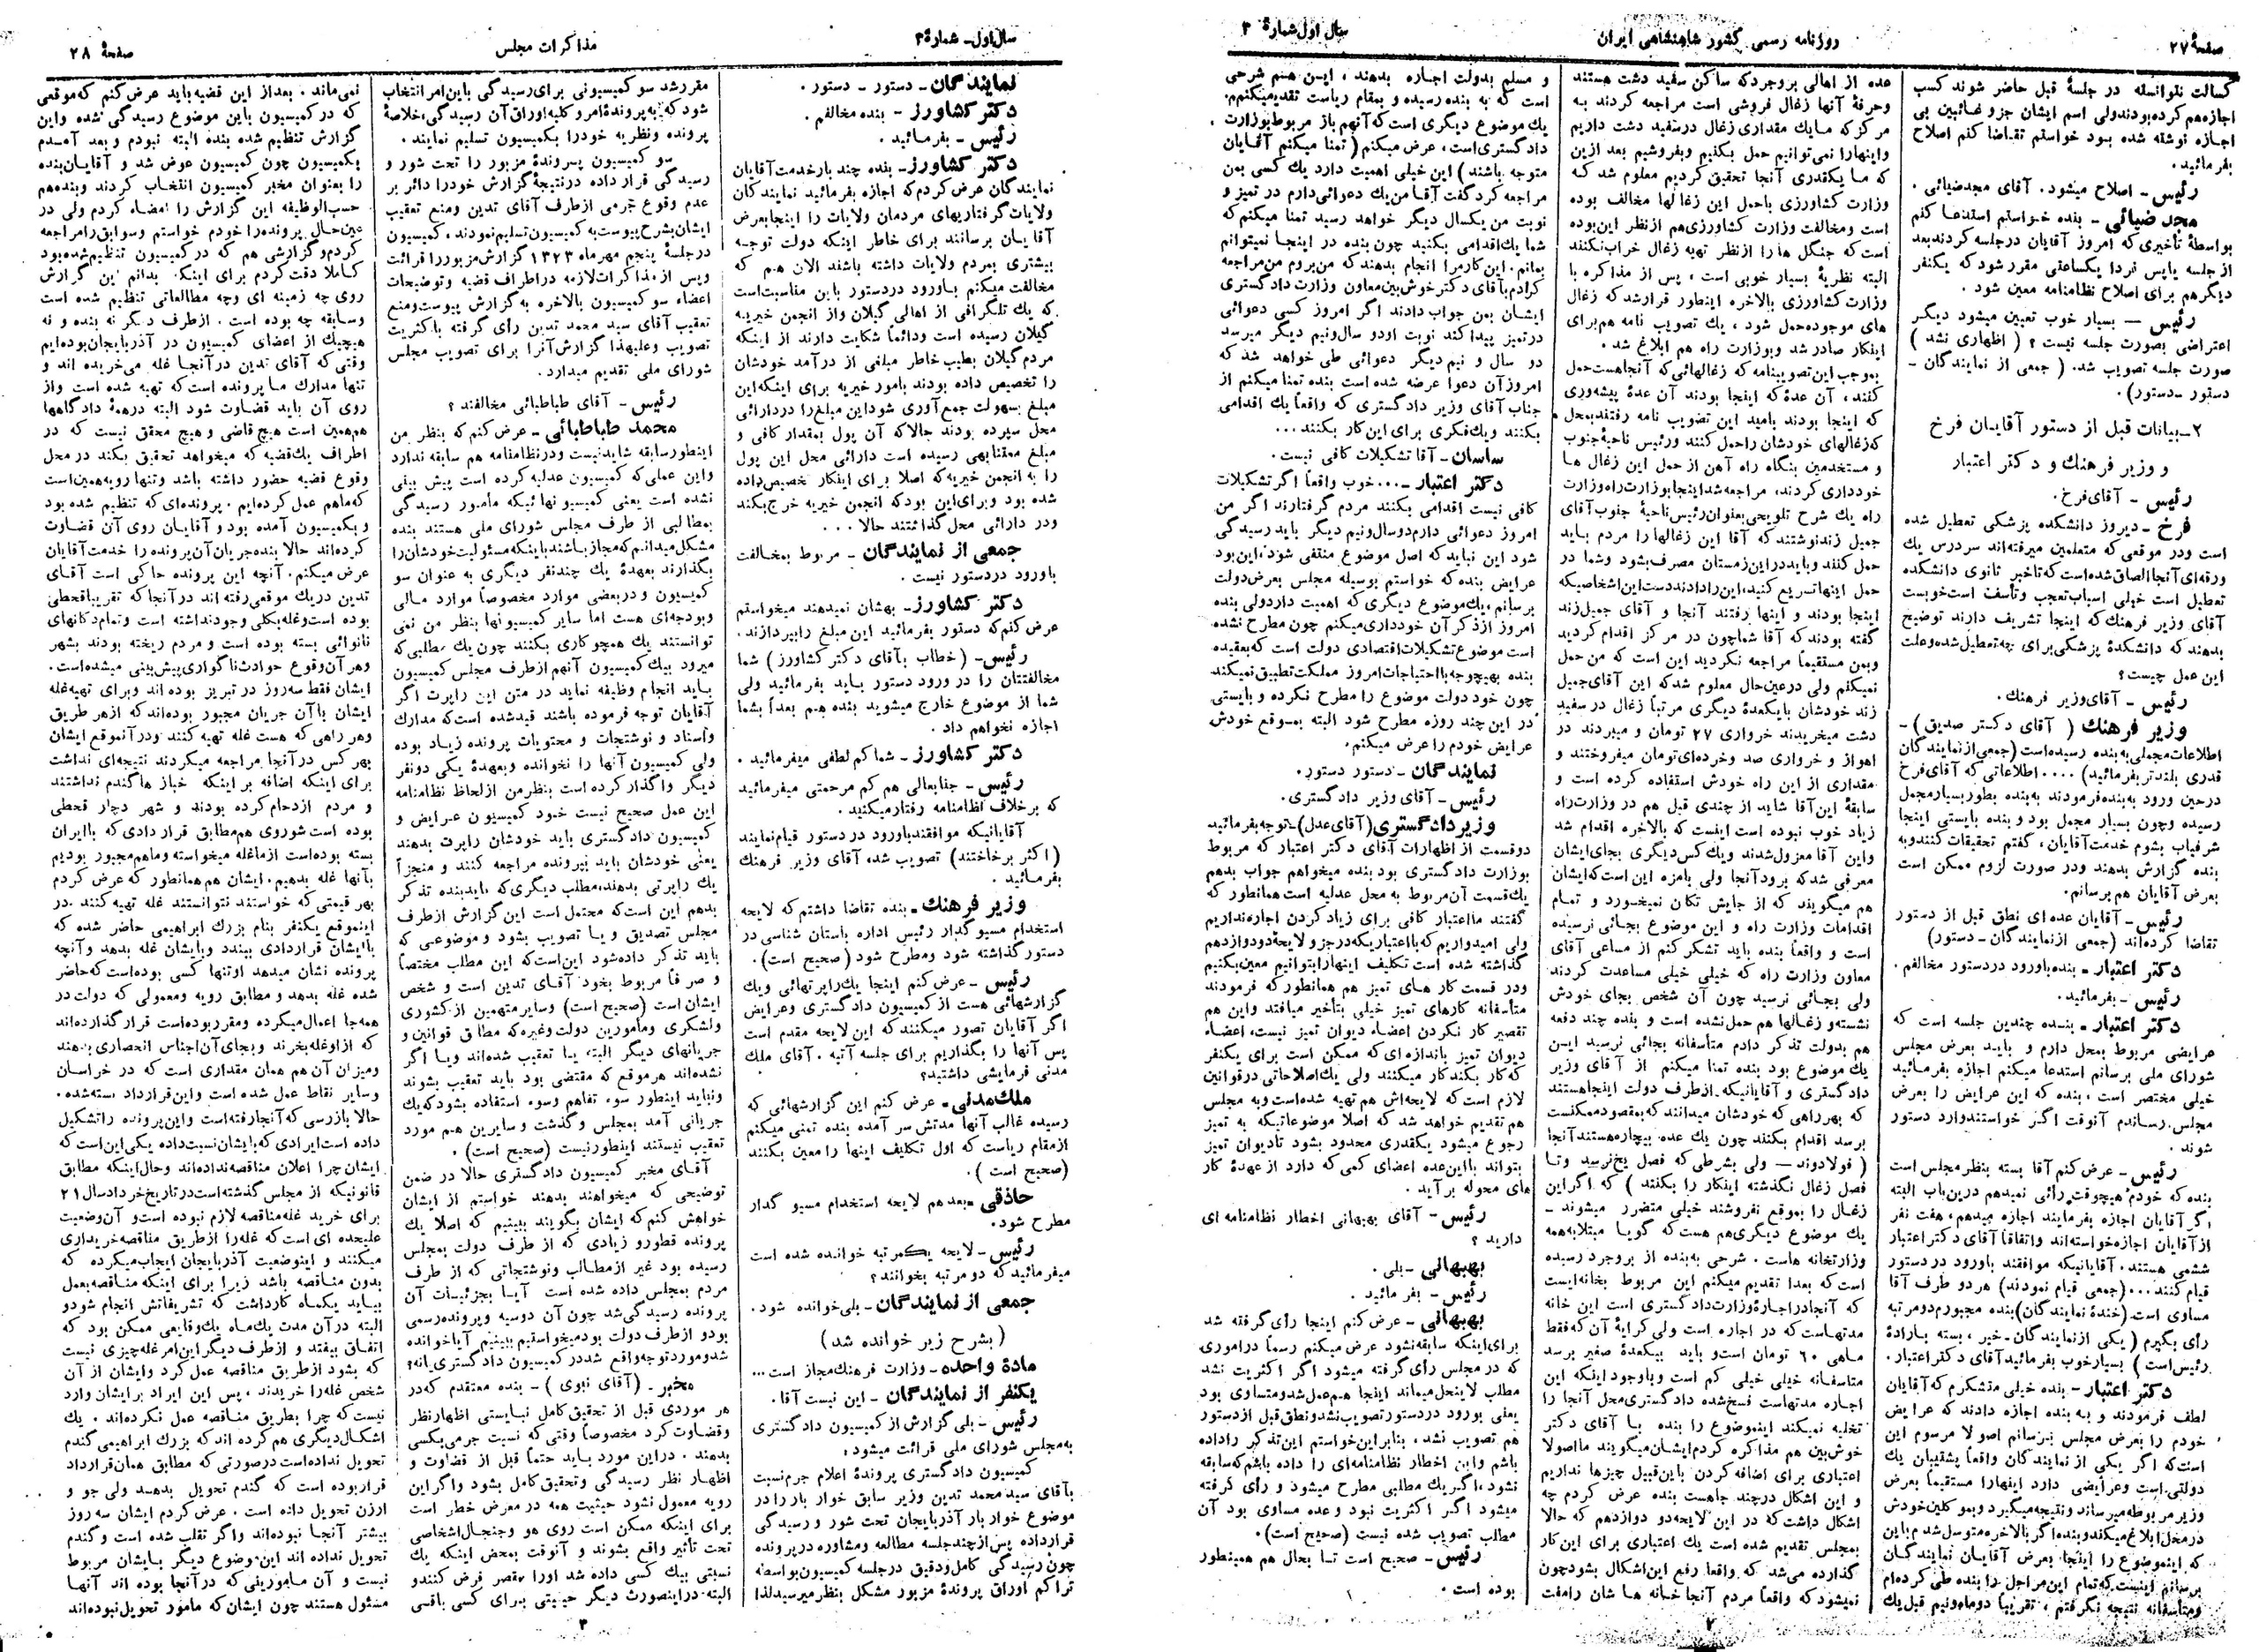 صفحهٔ ۲۷
روزنامه رسمی کشور شاهنشاهی ایران
سال اول شمارهٔ ۳
کسالت نتوانسته در جلسهٔ قبل حاضر شوند کسب
اجازه هم کرده بودند ولی اسم ایشان جزو غائبین بی
اجازه نوشته شده بود خواستم تقاضا کنم اصلاح
بفرمائید.
رئیس - اصلاح میشود. آقای مجدضیائی.
مجد ضیائی - بنده خواستم استدعا کنم
بواسطهٔ تأخیری که امروز آقایان در جلسه کردند بعد
از جلسه یا پس فردا یکساعتی مقرر شود که یکنفر
دیگر هم برای اصلاح نظامنامه معین شود.
رئیس — بسیار خوب تعیین میشود دیگر
اعتراضی بصورت جلسه نیست؟ (اظهاری نشد)
صورت جلسه تصویب شد. (جمعی از نمایندگان -
دستور - دستور).
۲- بیانات قبل از دستور آقایان فرخ
و وزیر فرهنگ و دکتر اعتبار
رئیس - آقای فرخ.
فرخ - دیروز دانشکده پزشکی تعطیل شده
است و در موقعی که متعلمین میرفته‌اند سر درس یك
ورقه‌ای آنجا الصاق شده است که تاخیر ثانوی دانشکده
تعطیل است خیلی اسباب تعجب و تأسف است خوبست
آقای وزیر فرهنگ که اینجا تشریف دارند توضیح
بدهند که دانشکدهٔ پزشکی برای چه تعطیل شده و علت
این عمل چیست؟
رئیس - آقای وزیر فرهنگ.
وزیر فرهنگ (آقای دکتر صدیق) -
اطلاعات مجملی به بنده رسیده است (جمعی از نمایندگان
قدری بلندتر بفرمائید) .... اطلاعاتی که آقای فرخ
در حین ورود به بنده فرمودند به بنده بطور بسیار مجمل
رسیده و چون بسیار مجمل بود و بنده بایستی اینجا
شرفیاب بشوم خدمت آقایان، گفتم تحقیقات کنند و به
بنده گزارش بدهند و در صورت لزوم ممکن است
بعرض آقایان هم برسانم.
رئیس - آقایان عده‌ای نطق قبل از دستور
تقاضا کرده‌اند (جمعی از نمایندگان - دستور)
دکتر اعتبار - بنده با ورود در دستور مخالفم.
رئیس - بفرمائید.
دکتر اعتبار - بنده چندین جلسه است که
عرایضی مربوط بمحل دارم و باید بعرض مجلس
شورای ملی برسانم استدعا میکنم اجازه بفرمائید
خیلی مختصر است، بنده که این عرایض را بعرض
مجلس رساندم آنوقت اگر خواستند وارد دستور
شوند.
رئیس - عرض کنم آقا بسته بنظر مجلس است
بنده که خودم هیچوقت رائی نمیدهم درین باب البته
اگر آقایان اجازه بفرمایند اجازه میدهم، هفت نفر
از آقایان اجازه خواسته‌اند و اتفاقاً آقای دکتر اعتبار
ششمی هستند. آقایانیکه موافقند با ورود در دستور
قیام کنند... (جمعی قیام نمودند) هر دو طرف آقا
مساوی است. (خندهٔ نمایندگان) بنده مجبورم دو مرتبه
رأی بگیرم (یکی از نمایندگان - خیر، بسته بارادهٔ
رئیس است) بسیار خوب بفرمائید آقای دکتر اعتبار.
دکتر اعتبار - بنده خیلی متشکرم که آقایان
لطف فرمودند و به بنده اجازه دادند که عرایض
خودم را بعرض مجلس برسانم اصولا مرسوم این
است که اگر یکی از نمایندگان واقعاً پشتیبان یك
دولتی است و عرایضی دارد اینها را مستقیماً بعرض
وزیر مربوطه میرساند و نتیجه میگیرد و بموکلین خودش
در محل ابلاغ میکند و بنده اگر بالاخره متوسل شدم باین
که این موضوع را اینجا بعرض آقایان نمایندگان
برسانم اینست که تمام این مراحل را بنده طی کرده‌ام
و متأسفانه نتیجه نگرفتم، تقریباً دو ماه و نیم قبل یك
عده از اهالی بروجرد که ساکن سفید دشت هستند
و حرفهٔ آنها زغال فروشی است مراجعه کردند به
مرکز که ما یك مقداری زغال در سفید دشت داریم
و اینها را نمی‌توانیم حمل بکنیم و بفروشیم بعد ازین
که ما یکقدری آنجا تحقیق کردیم معلوم شد که
وزارت کشاورزی با حمل این زغالها مخالف بوده
است و مخالفت وزارت کشاورزی هم از نظر این بوده
است که جنگل‌ها را از نظر تهیه زغال خراب نکنند
البته نظریهٔ بسیار خوبی است، پس از مذاکره با
وزارت کشاورزی بالاخره اینطور قرار شد که زغال
های موجوده حمل شود، یك تصویب نامه هم برای
اینکار صادر شد و بوزارت راه هم ابلاغ شد.
بموجب این تصویبنامه که زغالهائی که آنجا هست حمل
کنند، آن عدهٔ که اینجا بودند آن عدهٔ پیشه‌وری
که اینجا بودند بامید این تصویب نامه رفتند بمحل
که زغالهای خودشان را حمل کنند و رئیس ناحیهٔ جنوب
و مستخدمین بنگاه راه آهن از حمل این زغال ها
خودداری کردند، مراجعه شد اینجا بوزارت راه وزارت
راه یك شرح تلویحی بعنوان رئیس ناحیهٔ جنوب آقای
جمیل زند نوشتند که آقا این زغالها را مردم باید
حمل کنند و باید در این زمستان مصرف بشود و شما در
حمل اینها تسریع کنید، این را دادند دست این اشخاصیکه
اینجا بودند و اینها رفتند آنجا و آقای جمیل زند
گفته بودند که آقا شما چون در مرکز اقدام کردید
و بمن مستقیماً مراجعه نکردید این است که من حمل
نمیکنم ولی در عین حال معلوم شد که این آقای جمیل
زند خودشان با یکعدهٔ دیگری مرتباً زغال در سفید
دشت میخریدند خرواری ۲۷ تومان و میبردند در
اهواز و خرواری صد و خرده‌ای تومان میفروختند و
مقداری از این راه خودش استفاده کرده است و
سابقهٔ این آقا شاید از چندی قبل هم در وزارت راه
زیاد خوب نبوده است اینست که بالاخره اقدام شد
و این آقا معزول شدند و یك کس دیگری بجای ایشان
معرفی شد که برود آنجا ولی بامزه این است که ایشان
هم میگویند که از جایش تکان نمیخورد و تمام
اقدامات وزارت راه و این موضوع بجائی نرسیده
است و واقعاً بنده باید تشکر کنم از مساعی آقای
معاون وزارت راه که خیلی خیلی مساعدت کردند
ولی بجائی نرسید چون آن شخص بجای خودش
نشسته و زغالها هم حمل نشده است و بنده چند دفعه
هم بدولت تذکر دادم متأسفانه بجائی نرسید این
یك موضوع بود بنده تمنا میکنم از آقای وزیر
دادگستری و آقایانیکه از طرف دولت اینجا هستند
که بهر راهی که خودشان میدانند که بمقصود ممکنست
برسد اقدام بکنند چون یك عده بیچاره هستند آنجا
(فولادوند — ولی بشرطی که فصل یخ نرسد و تا
فصل زغال نگذشته اینکار را بکنند) که اگر این
زغال را بموقع نفروشند خیلی متضرر میشوند -
یك موضوع دیگری هم هست که گویا مبتلابه همه
وزارتخانه هاست. شرحی به بنده از بروجرد رسیده
است که بعدا تقدیم میکنم این مربوط بخانه‌ایست
که آنجا در اجارهٔ وزارت دادگستری است این خانه
مدتهاست که در اجاره است ولی کرایهٔ آن که فقط
ماهی ۶۰ تومان است و باید بیکعدهٔ صغیر برسد
متأسفانه خیلی خیلی کم است و باوجود اینکه این
اجاره مدتهاست فسخ شده دادگستری محل آنجا را
تخلیه نمیکند این موضوع را بنده با آقای دکتر
خوش‌بین هم مذاکره کردم ایشان میگویند ما اصولا
اعتباری برای اضافه کردن باین قبیل چیزها نداریم
و این اشکال در چند جا هست بنده عرض کردم چه
اشکال داشت که در این لایحه دو دوازدهم که حالا
بمجلس تقدیم شده است یك اعتباری برای این کار
گذارده می‌شد که واقعا رفع این اشکال بشود چون
نمیشود که واقعاً مردم آنجا خانه ها شان را مفت
و مسلم بدولت اجاره بدهند، این هم شرحی
است که به بنده رسیده و بمقام ریاست تقدیم میکنم.
یك موضوع دیگری است که آنهم باز مربوط بوزارت
دادگستری است، عرض میکنم (تمنا میکنم آقایان
متوجه باشند) این خیلی اهمیت دارد یك کسی بمن
مراجعه کرد گفت آقا من یك دعوائی دارم در تمیز و
نوبت من یکسال دیگر خواهد رسید تمنا میکنم که
شما یك اقدامی بکنید چون بنده در اینجا نمیتوانم
بمانم. این کار مرا انجام بدهند که من بروم من مراجعه
کردم بآقای دکتر خوش بین معاون وزارت دادگستری
ایشان بمن جواب دادند اگر امروز کسی دعوائی
در تمیز پیدا کند نوبت او دو سال و نیم دیگر میرسد
دو سال و نیم دیگر دعوائی طی خواهد شد که
امروز آن دعوا عرضه شده است بنده تمنا میکنم از
جناب آقای وزیر دادگستری که واقعاً یك اقدامی
بکنند و یك فکری برای این کار بکنند...
ساسان - آقا تشکیلات کافی نیست.
دکتر اعتبار -... خوب واقعاً اگر تشکیلات
کافی نیست اقدامی بکنند مردم گرفتارند اگر من
امروز دعوائی دارم دو سال و نیم دیگر باید رسیدگی
شود این نباید که اصل موضوع منتفی شود، این بود
عرایض بنده که خواستم بوسیله مجلس بعرض دولت
برسانم، یك موضوع دیگری که اهمیت دارد ولی بنده
امروز از ذکر آن خودداری میکنم چون مطرح نشده
است موضوع تشکیلات اقتصادی دولت است که بعقیده
بنده بهیچوجه با احتیاجات امروز مملکت تطبیق نمیکند
چون خود دولت موضوع را مطرح نکرده و بایستی
در این چند روزه مطرح شود البته بموقع خودش
عرایض خودم را عرض میکنم.
نمایندگان - دستور دستور.
رئیس - آقای وزیر دادگستری.
وزیر دادگستری (آقای عدل) - توجه بفرمائید
دو قسمت از اظهارات آقای دکتر اعتبار که مربوط
بوزارت دادگستری بود بنده میخواهم جواب بدهم
یك قسمت آن مربوط به محل عدلیه است همانطور که
گفتند ما اعتبار کافی برای زیاد کردن اجاره نداریم
ولی امیدواریم که با اعتباریکه در جزو لایحهٔ دو دوازدهم
گذاشته شده است تکلیف اینها را بتوانیم معین بکنیم
و در قسمت کار های تمیز هم همانطور که فرمودند
متأسفانه کارهای تمیز خیلی بتأخیر میافتد و این هم
تقصیر کار نکردن اعضاء دیوان تمیز نیست، اعضاء
دیوان تمیز باندازه‌ای که ممکن است برای یکنفر
که کار بکند کار میکنند ولی یك اصلاحاتی در قوانین
لازم است که لایحه‌اش هم تهیه شده است و به مجلس
هم تقدیم خواهد شد که اصلا موضوعاتیکه به تمیز
رجوع میشود یکقدری محدود بشود تا دیوان تمیز
بتواند با این عده اعضای کمی که دارد از عهدهٔ کار
های محوله برآید.
رئیس - آقای بهبهانی اخطار نظامنامه ای
دارید؟
بهبهانی - بلی.
رئیس - بفرمائید.
بهبهانی - عرض کنم اینجا رأی گرفته شد
برای اینکه سابقه نشود عرض میکنم رسماً در اموری
که در مجلس رأی گرفته میشود اگر اکثریت نشد
مطلب لاینحل میماند اینجا هم عمل شد و متساوی بود
یعنی بورود در دستور تصویب نشد و نطق قبل از دستور
هم تصویب نشد، بنابراین خواستم این تذکر را داده
باشم و این اخطار نظامنامه‌ای را داده باشم که سابقه
نشود، اگر یك مطلبی مطرح میشود و رأی گرفته
میشود اگر اکثریت نبود و عده مساوی بود آن
مطلب تصویب شده نیست (صحیح است).
رئیس - صحیح است تا بحال هم همینطور
بوده است.
۲
سال اول - شمارهٔ ۳
مذاکرات مجلس
صفحهٔ ۲۸
نمایندگان - دستور - دستور.
دکتر کشاورز - بنده مخالفم.
رئیس - بفرمائید.
دکتر کشاورز - بنده چند بار خدمت آقایان
نمایندگان عرض کردم که اجازه بفرمائید نمایندگان
ولایات گرفتاریهای مردمان ولایات را اینجا بعرض
آقایان برسانند برای خاطر اینکه دولت توجه
بیشتری بمردم ولایات داشته باشند الان هم که
مخالفت میکنم با ورود در دستور باین مناسبت است
که یك تلگرافی از اهالی گیلان و از انجمن خیریه
گیلان رسیده است و دائماً شکایت دارند از اینکه
مردم گیلان بطیب خاطر مبلغی از درآمد خودشان
را تخصیص داده بودند بامور خیریه برای اینکه این
مبلغ بسهولت جمع آوری شود این مبلغ را در دارائی
محل سپرده بودند حالا که آن پول بمقدار کافی و
مبلغ معتنابهی رسیده است دارائی محل این پول
را به انجمن خیریه که اصلا برای اینکار تخصیص داده
شده بود و برای این بود که انجمن خیریه خرج بکند
و در دارائی محل گذاشتند حالا...
جمعی از نمایندگان - مربوط بمخالفت
با ورود در دستور نیست.
دکتر کشاورز - بهشان نمیدهند میخواستم
عرض کنم که دستور بفرمائید این مبلغ را بپردازند.
رئیس - (خطاب بآقای دکتر کشاورز) شما
مخالفتتان را در ورود دستور باید بفرمائید ولی
شما از موضوع خارج میشوید بنده هم بعداً بشما
اجازه نخواهم داد.
دکتر کشاورز - شما کم لطفی میفرمائید.
رئیس - جنابعالی هم کم مرحمتی میفرمائید
که برخلاف نظامنامه رفتار میکنید.
آقایانیکه موافقند با ورود در دستور قیام نمایند
(اکثر برخاستند) تصویب شد، آقای وزیر فرهنگ
بفرمائید.
وزیر فرهنگ - بنده تقاضا داشتم که لایحه
استخدام مسیو گدار رئیس اداره باستان شناسی در
دستور گذاشته شود و مطرح شود (صحیح است).
رئیس - عرض کنم اینجا یك راپرتهائی و یك
گزارشهائی هست از کمیسیون دادگستری و عرایض
اگر آقایان تصور میکنند که این لایحه مقدم است
پس آنها را بگذاریم برای جلسه آتیه. آقای ملك
مدنی فرمایشی داشتید؟
ملك مدنی - عرض کنم این گزارشهائی که
رسیده غالب آنها مدتش سر آمده بنده تمنی میکنم
از مقام ریاست که اول تکلیف اینها را معین بکنند
(صحیح است).
حاذقی - بعد هم لایحه استخدام مسیو گدار
مطرح شود.
رئیس - لایحه یکمرتبه خوانده شده است
میفرمائید که دو مرتبه بخوانند؟
جمعی از نمایندگان - بلی خوانده شود.
(بشرح زیر خوانده شد)
مادهٔ واحده - وزارت فرهنگ مجاز است...
یکنفر از نمایندگان - این نیست آقا.
رئیس - بلی گزارش از کمیسیون دادگستری
به مجلس شورای ملی قرائت میشود:
کمیسیون دادگستری پروندهٔ اعلام جرم نسبت
بآقای سید محمد تدین وزیر سابق خوار بار را در
موضوع خوار بار آذربایجان تحت شور و رسیدگی
قرار داده پس از چند جلسه مطالعه و مشاوره در پرونده
چون رسیدگی کامل و دقیق در جلسه کمیسیون بواسطه
تراکم اوراق پروندهٔ مزبور مشکل بنظر میرسید لذا
مقرر شد سو کمیسیونی برای رسیدگی باین امر انتخاب
شود که به پروندهٔ امر و کلیه اوراق آن رسیدگی، خلاصهٔ
پرونده و نظریه خود را بکمیسیون تسلیم نمایند.
سو کمیسیون پروندهٔ مزبور را تحت شور و
رسیدگی قرار داده در نتیجهٔ گزارش خود را دائر بر
عدم وقوع جرمی از طرف آقای تدین و منع تعقیب
ایشان بشرح پیوست به کمیسیون تسلیم نمودند، کمیسیون
در جلسهٔ پنجم مهر ماه ۱۳۲۳ گزارش مزبور را قرائت
و پس از مذاکرات لازمه در اطراف قضیه و توضیحات
اعضاء سو کمیسیون بالاخره به گزارش پیوست و منع
تعقیب آقای سید محمد تدین رأی گرفته با کثریت
تصویب و علیهذا گزارش آنرا برای تصویب مجلس
شورای ملی تقدیم میدارد.
رئیس - آقای طباطبائی مخالفند؟
محمد طباطبائی - عرض کنم که بنظر من
اینطور سابقه شاید نیست و در نظامنامه هم سابقه ندارد
و این عملی که کمیسیون عدلیه کرده است پیش بینی
نشده است یعنی کمیسیونهائیکه مأمور رسیدگی
بمطالبی از طرف مجلس شورای ملی هستند بنده
مشکل میدانم که مجاز باشند باینکه مسئولیت خودشان را
بگذارند بعهدهٔ یك چند نفر دیگری به عنوان سو
کمیسیون و در بعضی موارد مخصوصاً موارد مالی
و بودجه‌ای هست اما سایر کمیسیونها بنظر من نمی
توانستند یك همچو کاری بکنند چون یك مطلبی که
میرود بیك کمیسیون آنهم از طرف مجلس کمیسیون
باید انجام وظیفه نماید در متن این راپرت اگر
آقایان توجه فرموده باشند قید شده است که مدارك
و اسناد و نوشتجات و محتویات پرونده زیاد بوده
ولی کمیسیون آنها را نخوانده و بعهدهٔ یکی دو نفر
دیگر واگذار کرده است بنظر من از لحاظ نظامنامه
این عمل صحیح نیست خود کمیسیون عرایض و
کمیسیون دادگستری باید خودشان راپرت بدهند
یعنی خودشان باید بپرونده مراجعه کنند و منجزاً
یك راپرتی بدهند، مطلب دیگری که باید بنده تذکر
بدهم این است که محتمل است این گزارش از طرف
مجلس تصدیق و یا تصویب بشود و موضوعی که
باید تذکر داده شود این است که این مطلب مختصاً
و صرفاً مربوط بخود آقای تدین است و شخص
ایشان است (صحیح است) و سایر متهمین از کشوری
و لشکری و مأمورین دولت و غیره که مطابق قوانین و
جریانهای دیگر البته یا تعقیب شده‌اند و یا اگر
نشده‌اند هر موقع که مقتضی بود باید تعقیب بشوند
و نباید اینطور سوء تفاهم و سوء استفاده بشود که یك
جریانی آمد بمجلس و گذشت و سایرین هم مورد
تعقیب نیستند اینطور نیست (صحیح است).
آقای مخبر کمیسیون دادگستری حالا در ضمن
توضیحی که میخواهند بدهند خواستم از ایشان
خواهش کنم که ایشان بگویند ببینیم که اصلا یك
پرونده قطور و زیادی که از طرف دولت بمجلس
رسیده بود غیر از مطالب و نوشتجاتی که از طرف
مردم بمجلس داده شده است آیا بجزئیات آن
پرونده رسیدگی شد چون آن دوسیه و پرونده رسمی
بود و از طرف دولت بود میخواستیم ببینیم آیا خوانده
شد و مورد توجه واقع شد در کمیسیون دادگستری یا نه؟
مخبر - (آقای نبوی) - بنده معتقدم که در
هر موردی قبل از تحقیق کامل نبایستی اظهار نظر
و قضاوت کرد مخصوصاً وقتی که نسبت جرمی بکسی
بدهند. در این مورد باید حتماً قبل از قضاوت و
اظهار نظر رسیدگی و تحقیق کامل بشود و اگر این
رویه معمول نشود حیثیت همه در معرض خطر است
برای اینکه ممکن است روی هو و جنجال اشخاصی
تحت تأثیر واقع بشوند و آنوقت بمحض اینکه یك
نسبتی بیك کسی داده شد او را مقصر فرض کنند و
البته در اینصورت دیگر حیثیتی برای کسی باقی
نمی‌ماند. بعد از این قضیه باید عرض کنم که موقعی
که در کمیسیون باین موضوع رسیدگی شده و این
گزارش تنظیم شده بنده البته نبودم و بعد آمدم
بکمیسیون چون کمیسیون عوض شد و آقایان بنده
را بعنوان مخبر کمیسیون انتخاب کردند و بنده هم
حسب الوظیفه این گزارش را امضاء کردم ولی در
عین حال پرونده را خودم خواستم و سوابق را مراجعه
کردم و گزارشی هم که در کمیسیون تنظیم شده بود
کاملا دقت کردم برای اینکه بدانم این گزارش
روی چه زمینه ای و چه مطالعاتی تنظیم شده است
و سابقه چه بوده است. از طرف دیگر نه بنده و نه
هیچیك از اعضای کمیسیون در آذربایجان بوده‌ایم
وقتی که آقای تدین در آنجا غله می‌خریده اند و
تنها مدارك ما پرونده است که تهیه شده است و از
روی آن باید قضاوت شود البته در همهٔ دادگاهها
هم همین است هیچ قاضی و هیچ محقق نیست که در
اطراف یك قضیه که میخواهد تحقیق بکند در محل
وقوع قضیه حضور داشته باشد و تنها رویه همین است
که ما هم عمل کرده‌ایم. پرونده‌ای که تنظیم شده بود
و بکمیسیون آمده بود و آقایان روی آن قضاوت
کرده‌اند حالا بنده جریان آن پرونده را خدمت آقایان
عرض میکنم. آنچه این پرونده حاکی است آقای
تدین در یك موقعی رفته اند در آنجا که تقریباً قحطی
بوده است و غله بکلی وجود نداشته است و تمام دکانهای
نانوائی بسته بوده است و مردم ریخته بودند بشهر
و هر آن وقوع حوادث ناگواری پیش‌بینی میشده است.
ایشان فقط سه روز در تبریز بوده اند و برای تهیه غله
ایشان با آن جریان مجبور بوده‌اند که از هر طریق
و هر راهی که هست غله تهیه کنند و در آنموقع ایشان
بهر کس در آنجا مراجعه میکردند نتیجه‌ای نداشت
برای اینکه اضافه بر اینکه خباز ها گندم نداشتند
و مردم ازدحام کرده بودند و شهر دچار قحطی
بوده است شوروی هم مطابق قرار دادی که با ایران
بسته بوده است از ما غله میخواسته و ما هم مجبور بودیم
بآنها غله بدهیم. ایشان هم همانطور که عرض کردم
بهر قیمتی که خواستند نتوانستند غله تهیه کنند. در
اینموقع یکنفر بنام بزرك ابراهیمی حاضر شده که
با ایشان قراردادی ببندد و بایشان غله بدهد و آنچه
پرونده نشان میدهد او تنها کسی بوده است که حاضر
شده غله بدهد و مطابق رویه و معمولی که دولت در
همه‌جا اعمال میکرده و مقرر بوده است قرار گذارده‌اند
که از او غله بخرند و بجای آن اجناس انحصاری بدهند
و میزان آن هم همان مقداری است که در خراسان
و سایر نقاط عمل شده است و این قرارداد بسته شده.
حالا بازرسی که آنجا رفته است و این پرونده را تشکیل
داده است ایرادی که بایشان نسبت داده یکی این است که
ایشان چرا اعلان مناقصه نداده‌اند و حال اینکه مطابق
قانونیکه از مجلس گذشته است در تاریخ خرداد سال ۲۱
برای خرید غله مناقصه لازم نبوده است و آن وضعیت
علیحده ای است که غله را از طریق مناقصه خریداری
میکنند و اینوضعیت آذربایجان ایجاب میکرده که
بدون مناقصه باشد زیرا برای اینکه مناقصه بعمل
بیاید یکماه کار داشت که تشریفاتش انجام شود و
البته در آن مدت یك ماه یك وقایعی ممکن بود که
اتفاق بیفتد و از طرف دیگر این امر غله چیزی نیست
که بشود از طریق مناقصه عمل کرد و ایشان از آن
شخص غله را خریدند، پس این ایراد بر ایشان وارد
نیست که چرا بطریق مناقصه عمل نکرده‌اند. یك
اشکال دیگری هم کرده اند که بزرك ابراهیمی گندم
تحویل نداده است در صورتی که مطابق همان قرارداد
قرار بوده است که گندم تحویل بدهد ولی جو و
ارزن تحویل داده است. عرض کردم ایشان سه روز
بیشتر آنجا نبوده‌اند و اگر تقلب شده است و گندم
تحویل نداده اند این موضوع دیگر بایشان مربوط
نیست و آن مامورینی که در آنجا بوده اند آنها
مسئول هستند چون ایشان که مامور تحویل نبوده‌اند
۳